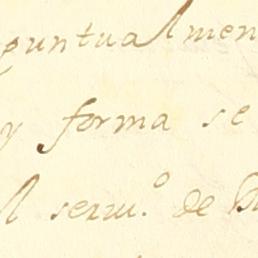 puntualmen
y forma se
l seruı.º de